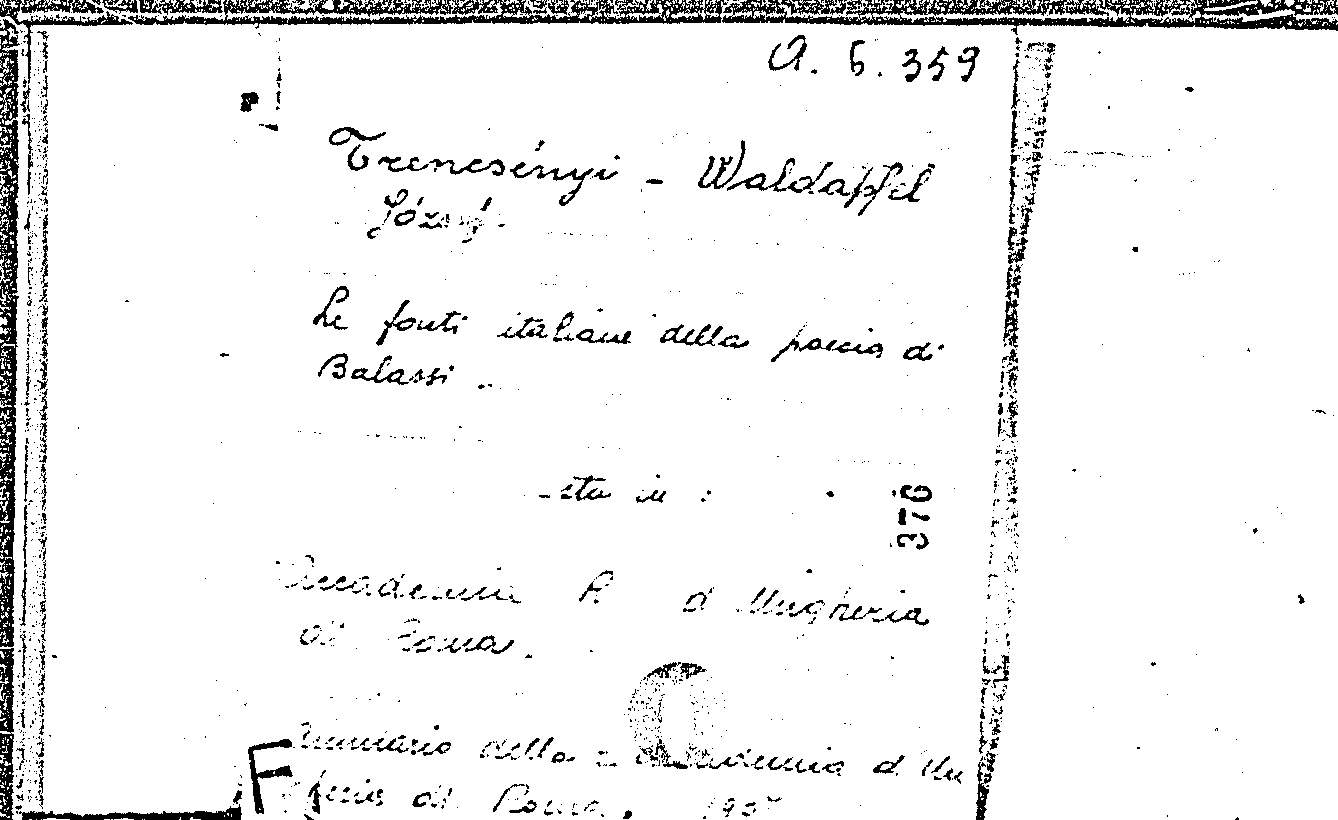 A. 6. 359
Trencsényi - Waldapfel
József.
Le fonti italiane della poesia di
Balassi.
sta in :
376
Accademia R. d'Ungheria
di Roma.
Annuario della R. Accademia d'Un
gheria di Roma,
F